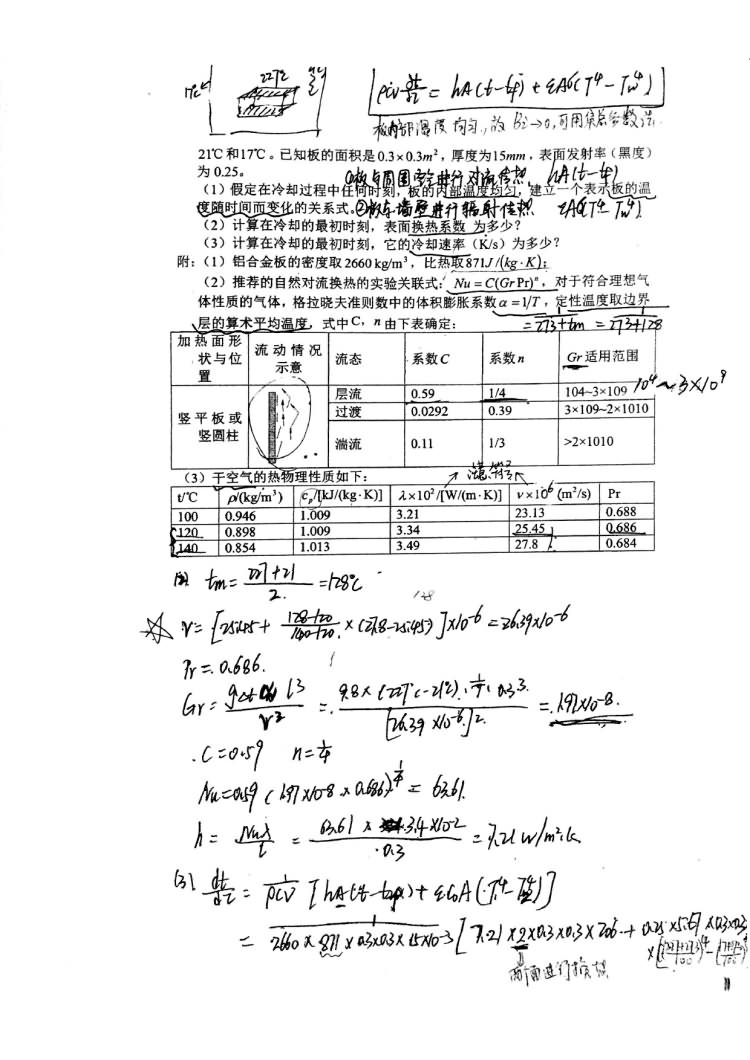 227℃
17℃
ρcv dt/dτ = hA(t-tf) + εAσ(T⁴-Tw⁴)
板内部温度均匀,故Bi→0,可用集总参数法
21℃和17℃。已知板的面积是0.3×0.3m²,厚度为15mm,表面发射率(黑度)
为0.25。
①板与周围空气进行对流传热 hA(t-tf)
(1)假定在冷却过程中任何时刻,板的内部温度均匀,建立一个表示板的温
度随时间而变化的关系式。
②板与墙壁进行辐射传热 εAσ(T⁴-Tw⁴)
(2)计算在冷却的最初时刻,表面换热系数 为多少?
(3)计算在冷却的最初时刻,它的冷却速率(K/s)为多少?
附:(1)铝合金板的密度取2660 kg/m³,比热取871J/(kg·K);
(2)推荐的自然对流换热的实验关联式: Nu=C(GrPr)ⁿ,对于符合理想气
体性质的气体,格拉晓夫准则数中的体积膨胀系数α=1/T,定性温度取边界
层的算术平均温度,式中C,n由下表确定:
=273+tm = 273+128
加热面形状与位置 流动情况示意 流态 系数C 系数n Gr适用范围
竖平板或竖圆柱
层流 0.59 1/4 104~3×109 10⁴~3×10⁹
过渡 0.0292 0.39 3×109~2×1010
湍流 0.11 1/3 >2×1010
(3)干空气的热物理性质如下:
t/℃ ρ/(kg/m³) cp/[kJ/(kg·K)] λ×10²/[W/(m·K)] ν×10⁶ (m²/s) Pr
100 0.946 1.009 3.21 23.13 0.688
120 0.898 1.009 3.34 25.45 0.686
140 0.854 1.013 3.49 27.8 0.684
tm= 227+21/2 =128℃
128
ν= [25.45+ 128-120/140-120 ×(27.8-25.45)]×10⁻⁶ =26.39×10⁻⁶
Pr=0.686.
Gr= gΔtαl³/ν² = 9.8×(227℃-21℃)·¼·0.3³/[26.39×10⁻⁶]² = 1.97×10⁻8.
C=0.59 n=¼
Nu=0.59(1.97×10-8×0.686)^¼ = 63.61.
h= Nuλ/l = 63.61×3.4×10-2/0.3 =7.21 w/m²·k
(3) dt/dτ = 1/ρcv [hA(t-tf)+εC₀A(T⁴-T⁴)]
= 1/2660×871×0.3×0.3×15×10-3 [7.21×2×0.3×0.3×206+0.25×5.67×0.3×0.3
×[(227+273/100)⁴-(17+273/100)⁴]
两面进行换热